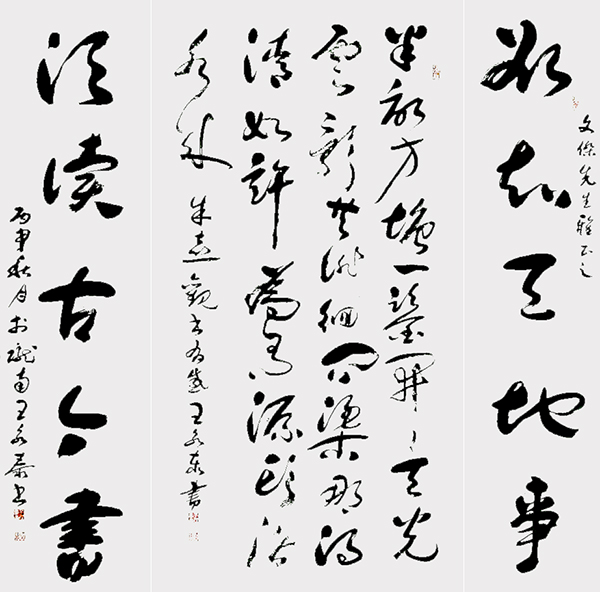 欲知天地事
文傑先生雅正之
半畝方塘一鑒開天光
雲影共徘徊問渠那得
清如許為有源頭活
水來
朱熹觀書有感王永泰書
須讀古今書
丙申秋月於隴南王永泰書